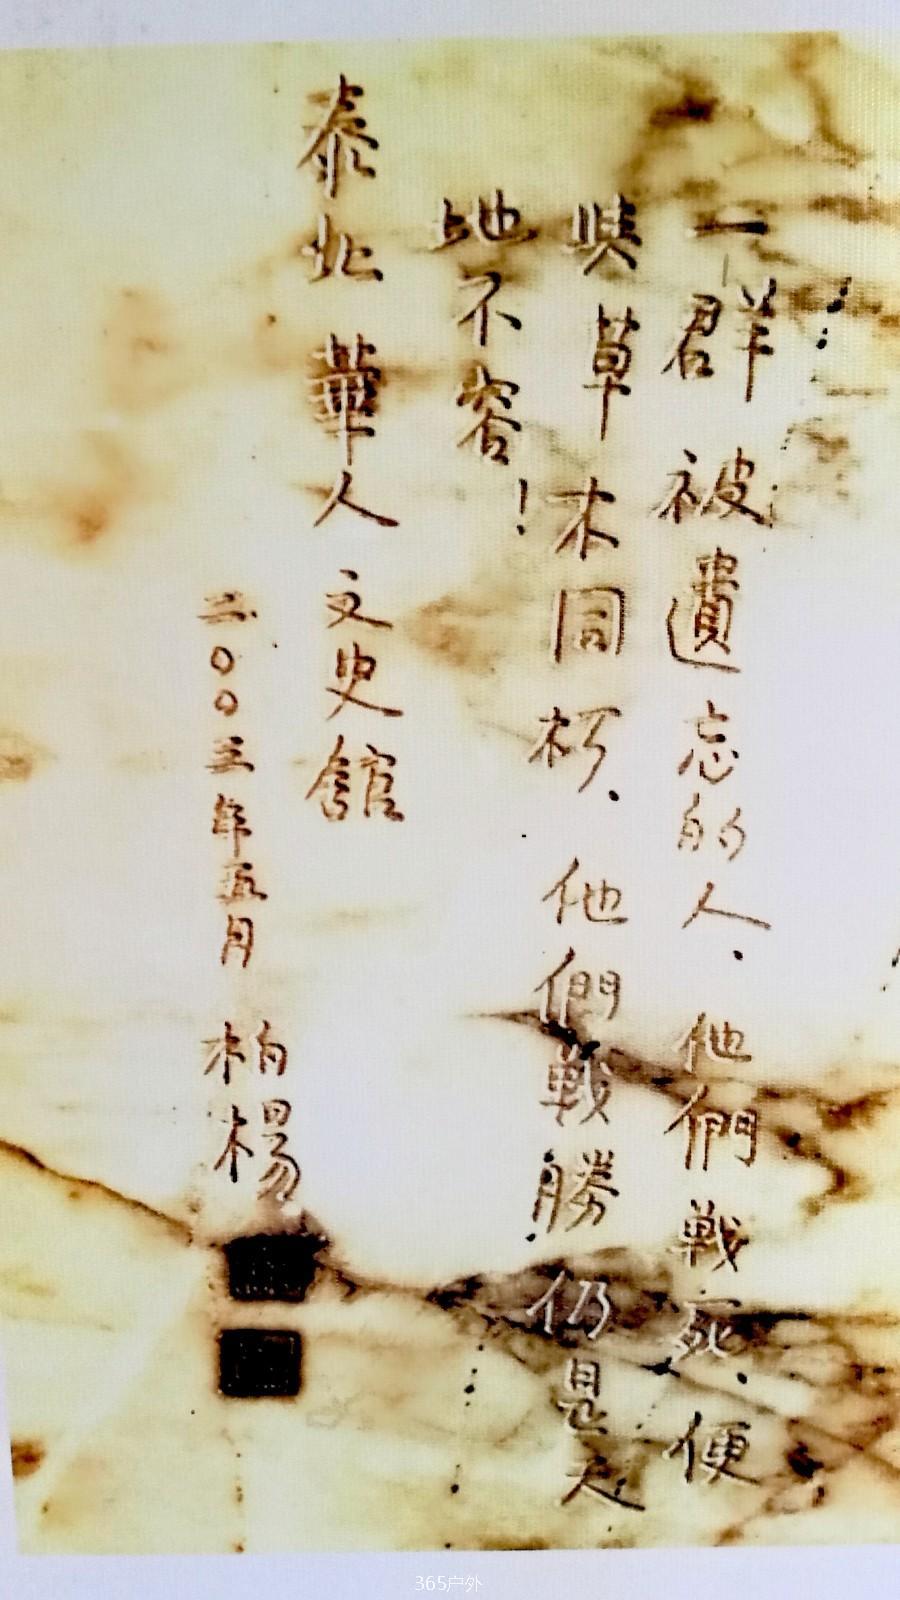 一群被遺忘的人．他們戰死．便
與草木同朽．他們戰勝仍是天
地不容！
泰北華人文史館
二〇〇三年五月 柏楊
365户外